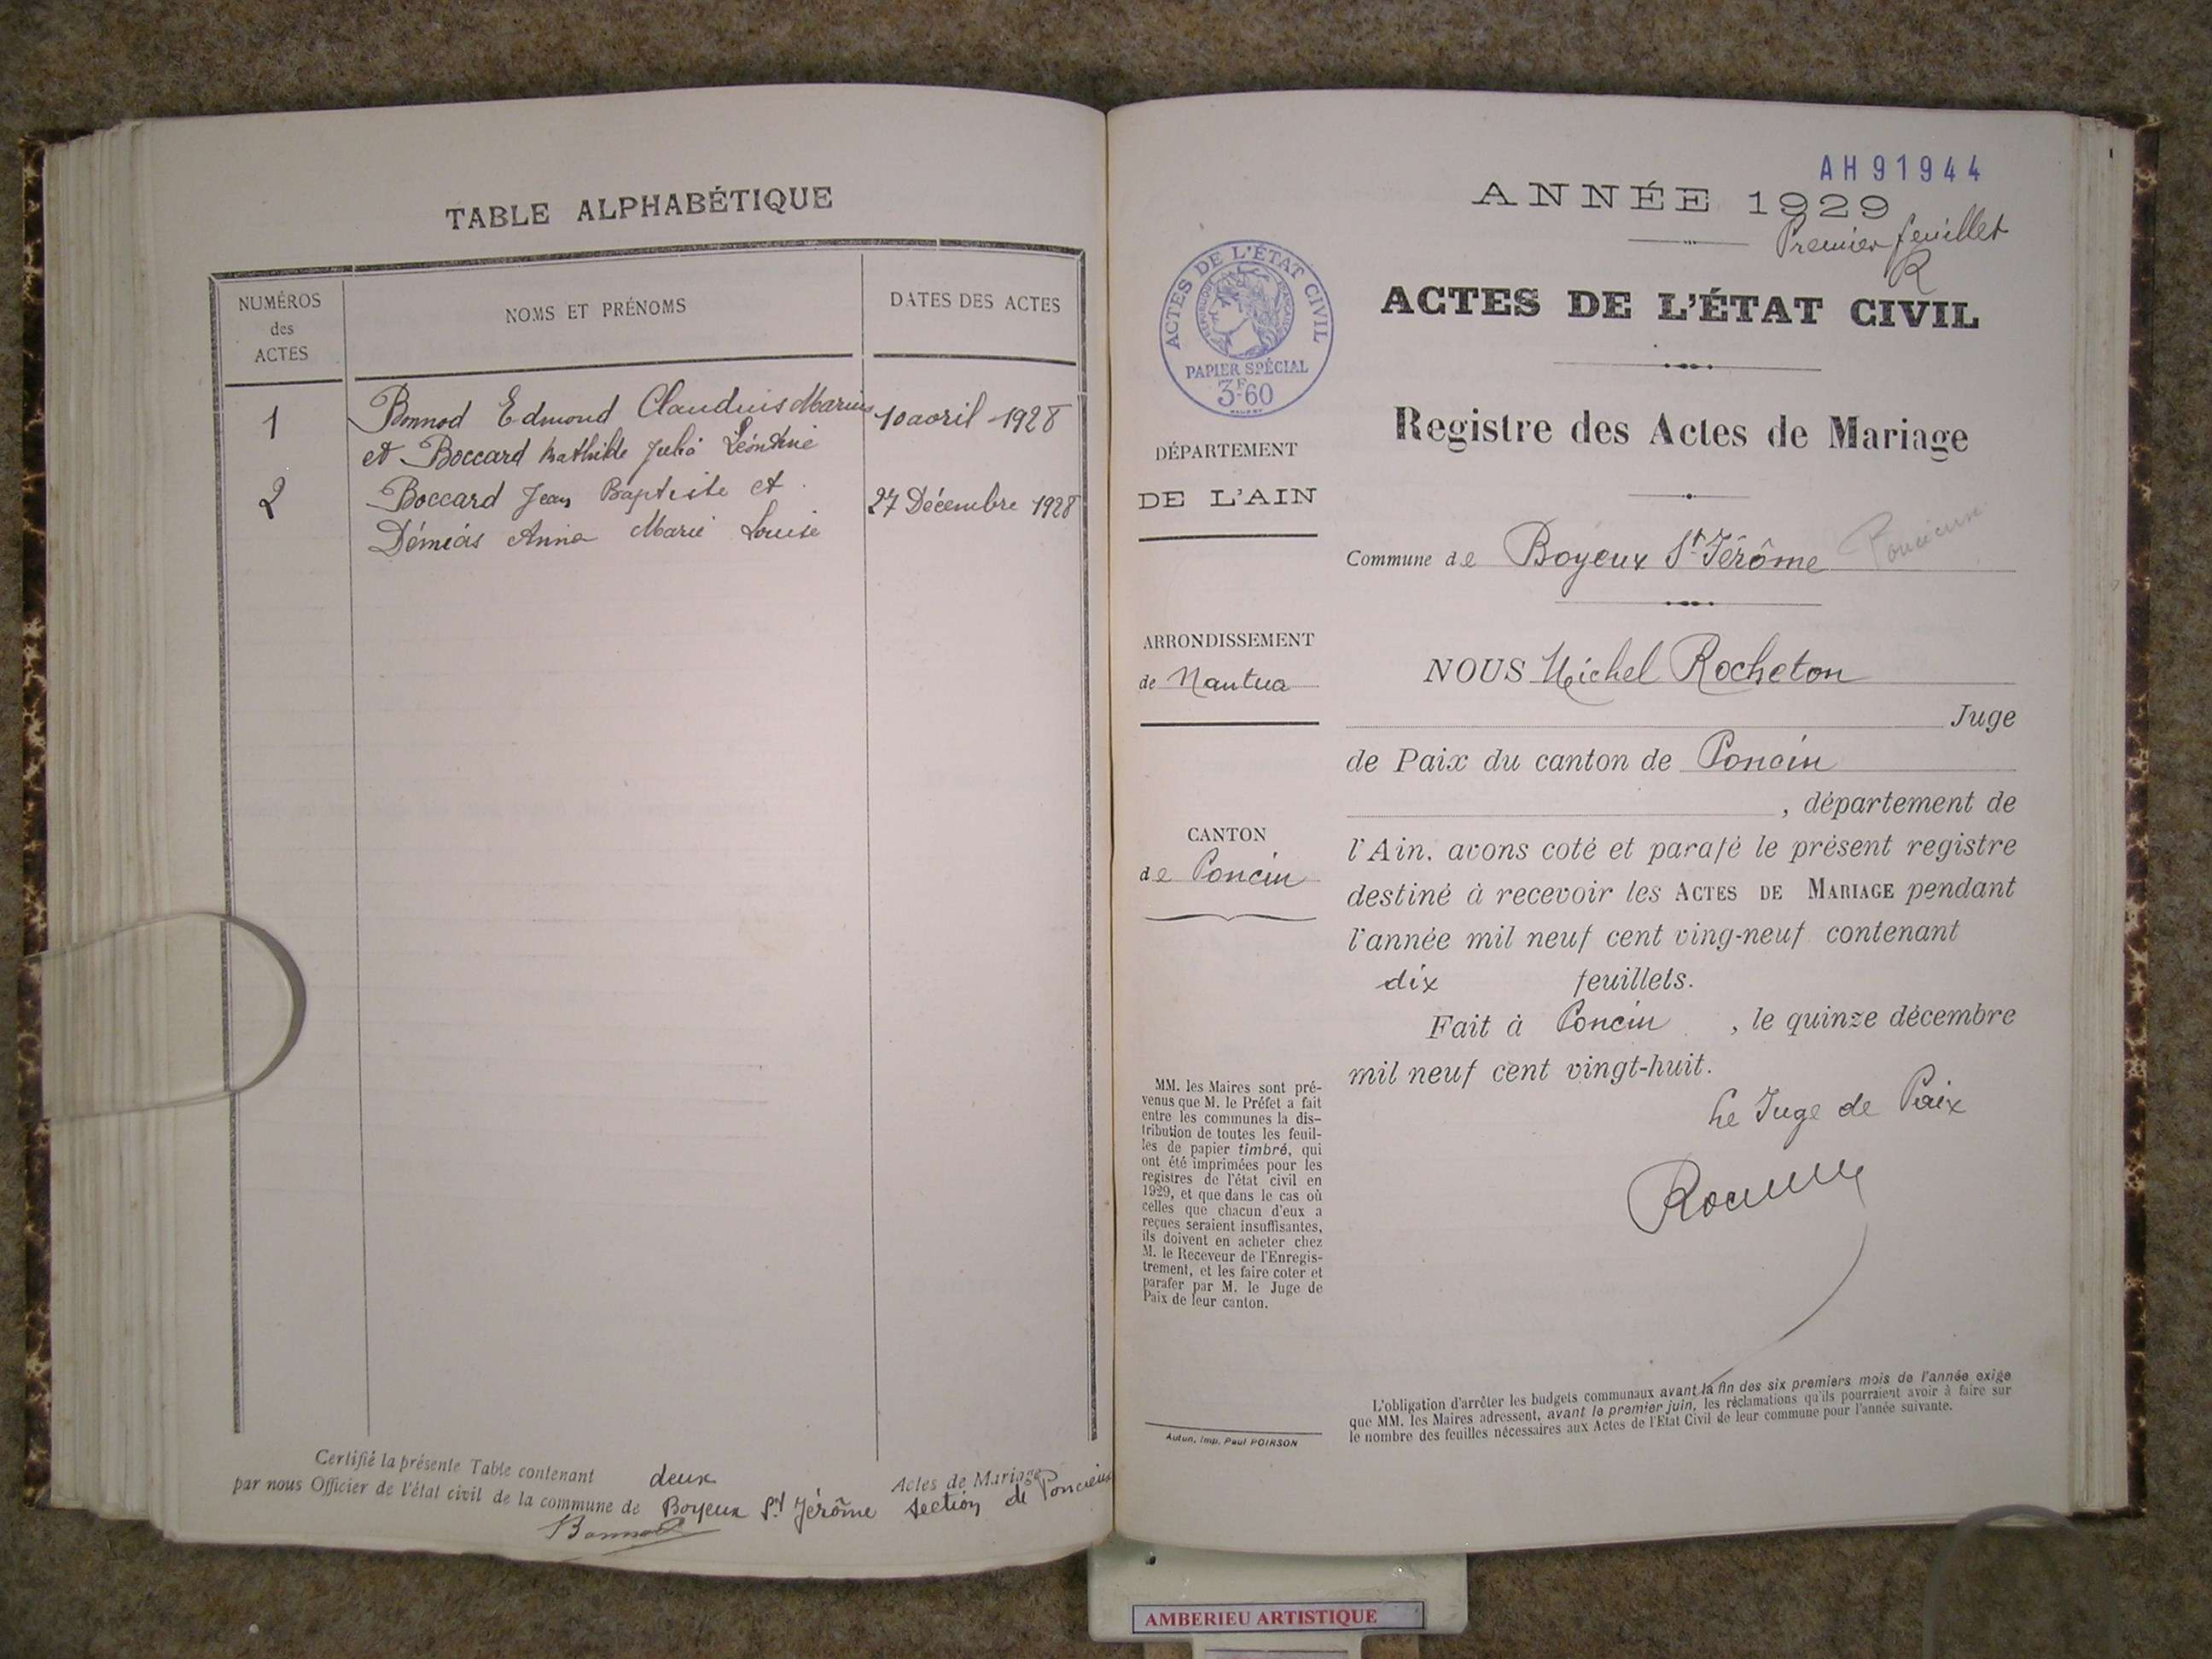 TABLE ALPHABÉTIQUE
NUMÉROS
des
ACTES
NOMS ET PRÉNOMS
DATES DES ACTES
1
Bonnod Edmond Claudius Marius
10 avril 1928
et Boccard Mathilde Julia Léontine
2
Boccard Jean Baptiste et
27 Décembre 1928
Démias Anna Marie Louise
Certifié la présente Table contenant deux Actes de Mariage
par nous Officier de l'état civil de la commune de Boyeux St Jérôme section de Poncieux
AH91944
ANNÉE 1929
Premier feuillet
R
ACTES DE L'ÉTAT CIVIL
RÉPUBLIQUE FRANÇAISE
PAPIER SPÉCIAL
3F60
ACTES DE L'ÉTAT CIVIL
Registre des Actes de Mariage
DÉPARTEMENT
DE L'AIN
Commune de Boyeux St Jérôme Poncieux
ARRONDISSEMENT
de Nantua
CANTON
de Poncin
NOUS Michel Rocheton
Juge
de Paix du canton de Poncin
, département de
l'Ain. avons coté et parafé le présent registre
destiné à recevoir les ACTES DE MARIAGE pendant
l'année mil neuf cent ving-neuf contenant
dix feuillets.
Fait à Poncin , le quinze décembre
mil neuf cent vingt-huit.
Le Juge de Paix
MM. les Maires sont pré-
venus que M. le Préfet a fait
entre les communes la dis-
tribution de toutes les feuil-
les de papier timbré, qui
ont été imprimées pour les
registres de l'état civil en
1929, et que dans le cas où
celles que chacun d'eux a
reçues seraient insuffisantes,
ils doivent en acheter chez
M. le Receveur de l'Enregis-
trement, et les faire coter et
parafer par M. le Juge de
Paix de leur canton.
Autun, Imp. Paul POIRSON
L'obligation d'arrêter les budgets communaux avant la fin des six premiers mois de l'année exige
que MM. les Maires adressent, avant le premier juin, les réclamations qu'ils pourraient avoir à faire sur
le nombre des feuilles nécessaires aux Actes de l'Etat Civil de leur commune pour l'année suivante.
AMBERIEU ARTISTIQUE